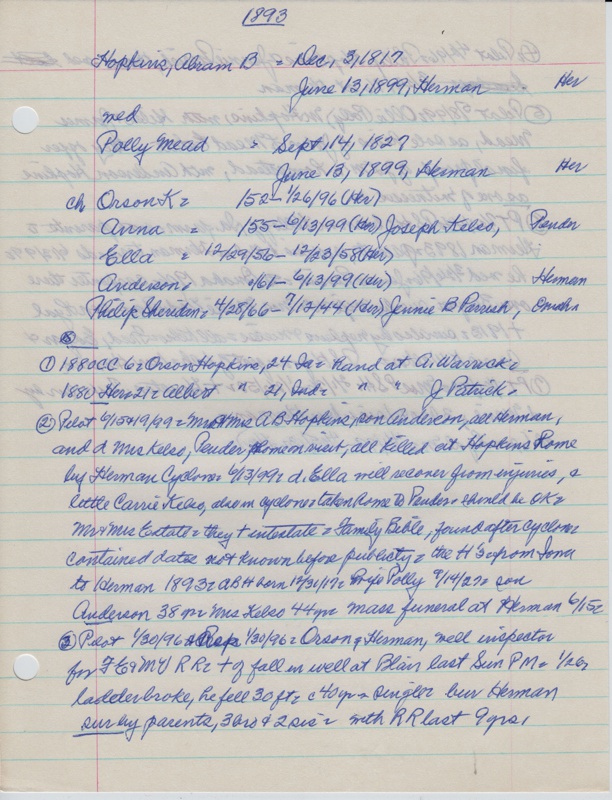 1893
Hopkins, Abram B = Dec, 3, 1817
June 13, 1899, Herman Her
med
Polly Mead = Sept 14, 1827
June 13, 1899, Herman Her
ch Orson K = '52 - 1/26/96 (Her)
Anna = '55 - 6/13/99 (Her) Joseph Kelso, Pender
Ella = 12/29/56 - 12/23/58 (Her)
Anderson = '61 - 6/13/99 (Her) Herman
Philip Sheridan = 4/28/66 - 7/13/44 (Her) Jennie B Parrish, Omaha
① 1880 CC 6 = Orson Hopkins, 24 Ia = Hand at A. Warrick =
1880 Her 21 = Albert " 21, Ind = " " J Patrick =
② Pilot 6/15 & 19/99 = Mr & Mrs A B Hopkins, son Anderson, all Herman,
and d Mrs Kelso, Pender home on visit, all killed at Hopkins Home
by Herman Cyclone 6/13/99 = d. Ella will recover from injuries, &
little Carrie Kelso, also in cyclone = taken home to Pender = should be OK =
Mr & Mrs Estate = they + intestate = Family Bible, found after cyclone
contained dates not known before publicity = the H's from Iowa
to Herman 1893 = ABH born 12/31/17 = Wife Polly 9/14/27 = son
Anderson 38 yr = Mrs Kelso 44 yr = mass funeral at Herman 6/15 =
③ Pilot 1/30/96 & 1/30/96 = Orson of Herman, well inspector
for F E & M V RR = + of fall in well at Blair last Sun PM = 1/26,
ladder broke, he fell 30 ft = c 40 yr = single = bur Herman
sur by parents, 3 brs & 2 sis = with RR last 9 yrs,